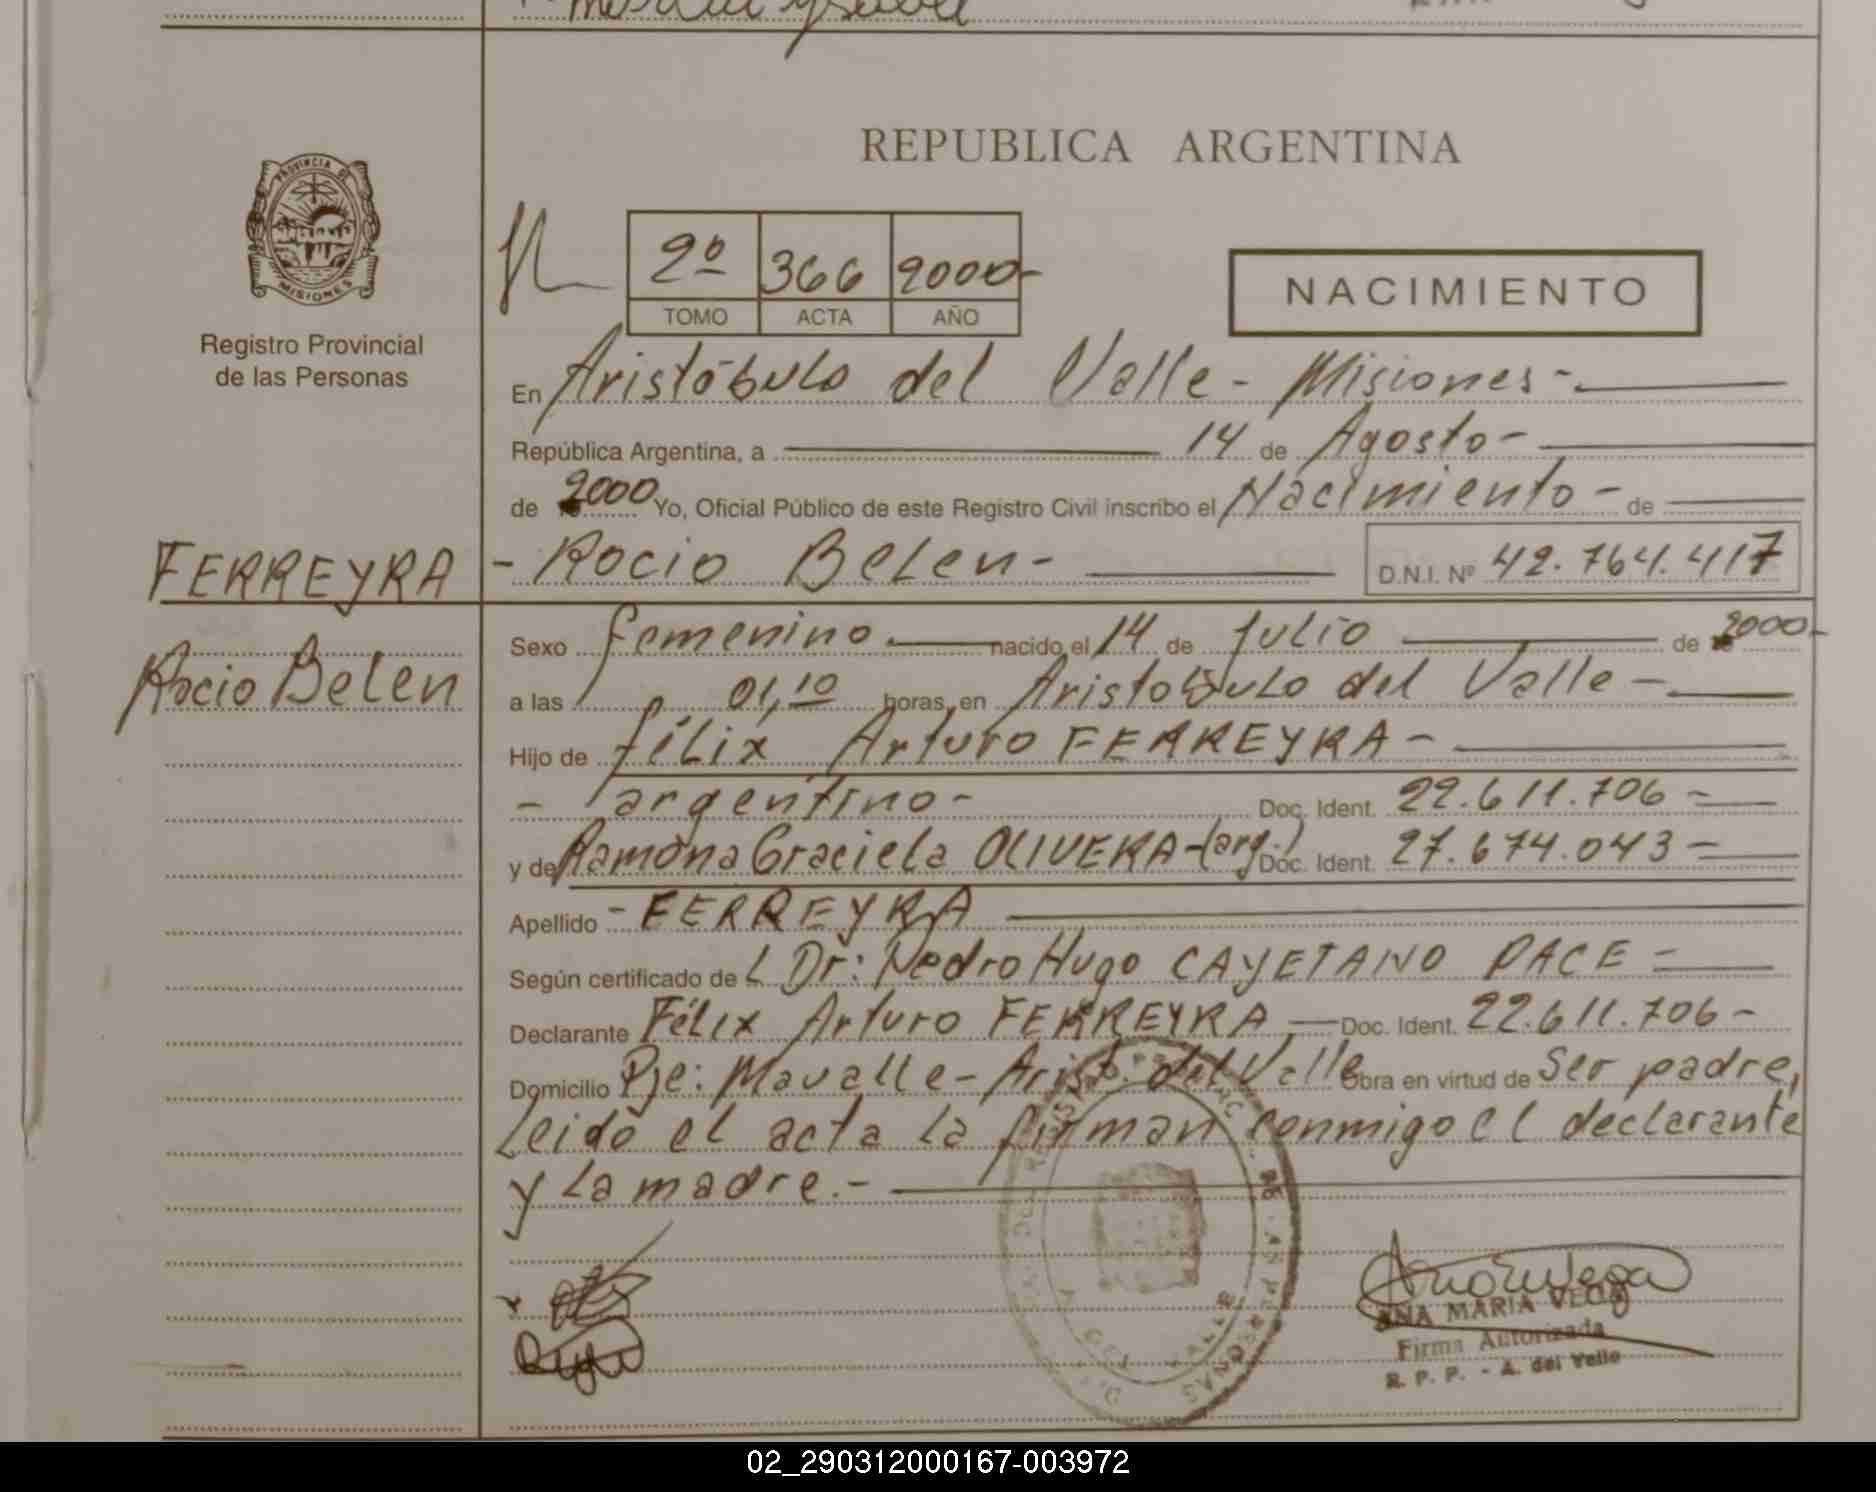 REPUBLICA ARGENTINA
PROVINCIA DE
MISIONES
Registro Provincial
de las Personas
2º 366 2000-
TOMO ACTA AÑO
NACIMIENTO
En Aristóbulo del Valle - Misiones -
República Argentina, a 14 de Agosto -
de 2000 Yo, Oficial Público de este Registro Civil inscribo el Nacimiento - de
FERREYRA - Rocio Belen - D.N.I. Nº 42.764.417
Rocio Belen
Sexo femenino. nacido el 14 de Julio de 2000-
a las 01,10 horas, en Aristobulo del Valle -
Hijo de Félix Arturo FERREYRA -
- argentino - Doc. Ident. 22.611.706 -
y de Ramona Graciela OLIVERA - (arg.) Doc. Ident. 27.674.043 -
Apellido - FERREYRA
Según certificado de L Dr: Pedro Hugo CAYETANO PACE -
Declarante Félix Arturo FERREYRA - Doc. Ident. 22.611.706 -
Domicilio Pje: Mavalle - Arist. del Valle Obra en virtud de Ser padre,
Leido el acta la firman conmigo el declarante
y la madre. -
ANA MARIA VEGA
Firma Autorizada
R. P. P. - A. del Valle
02_290312000167-003972